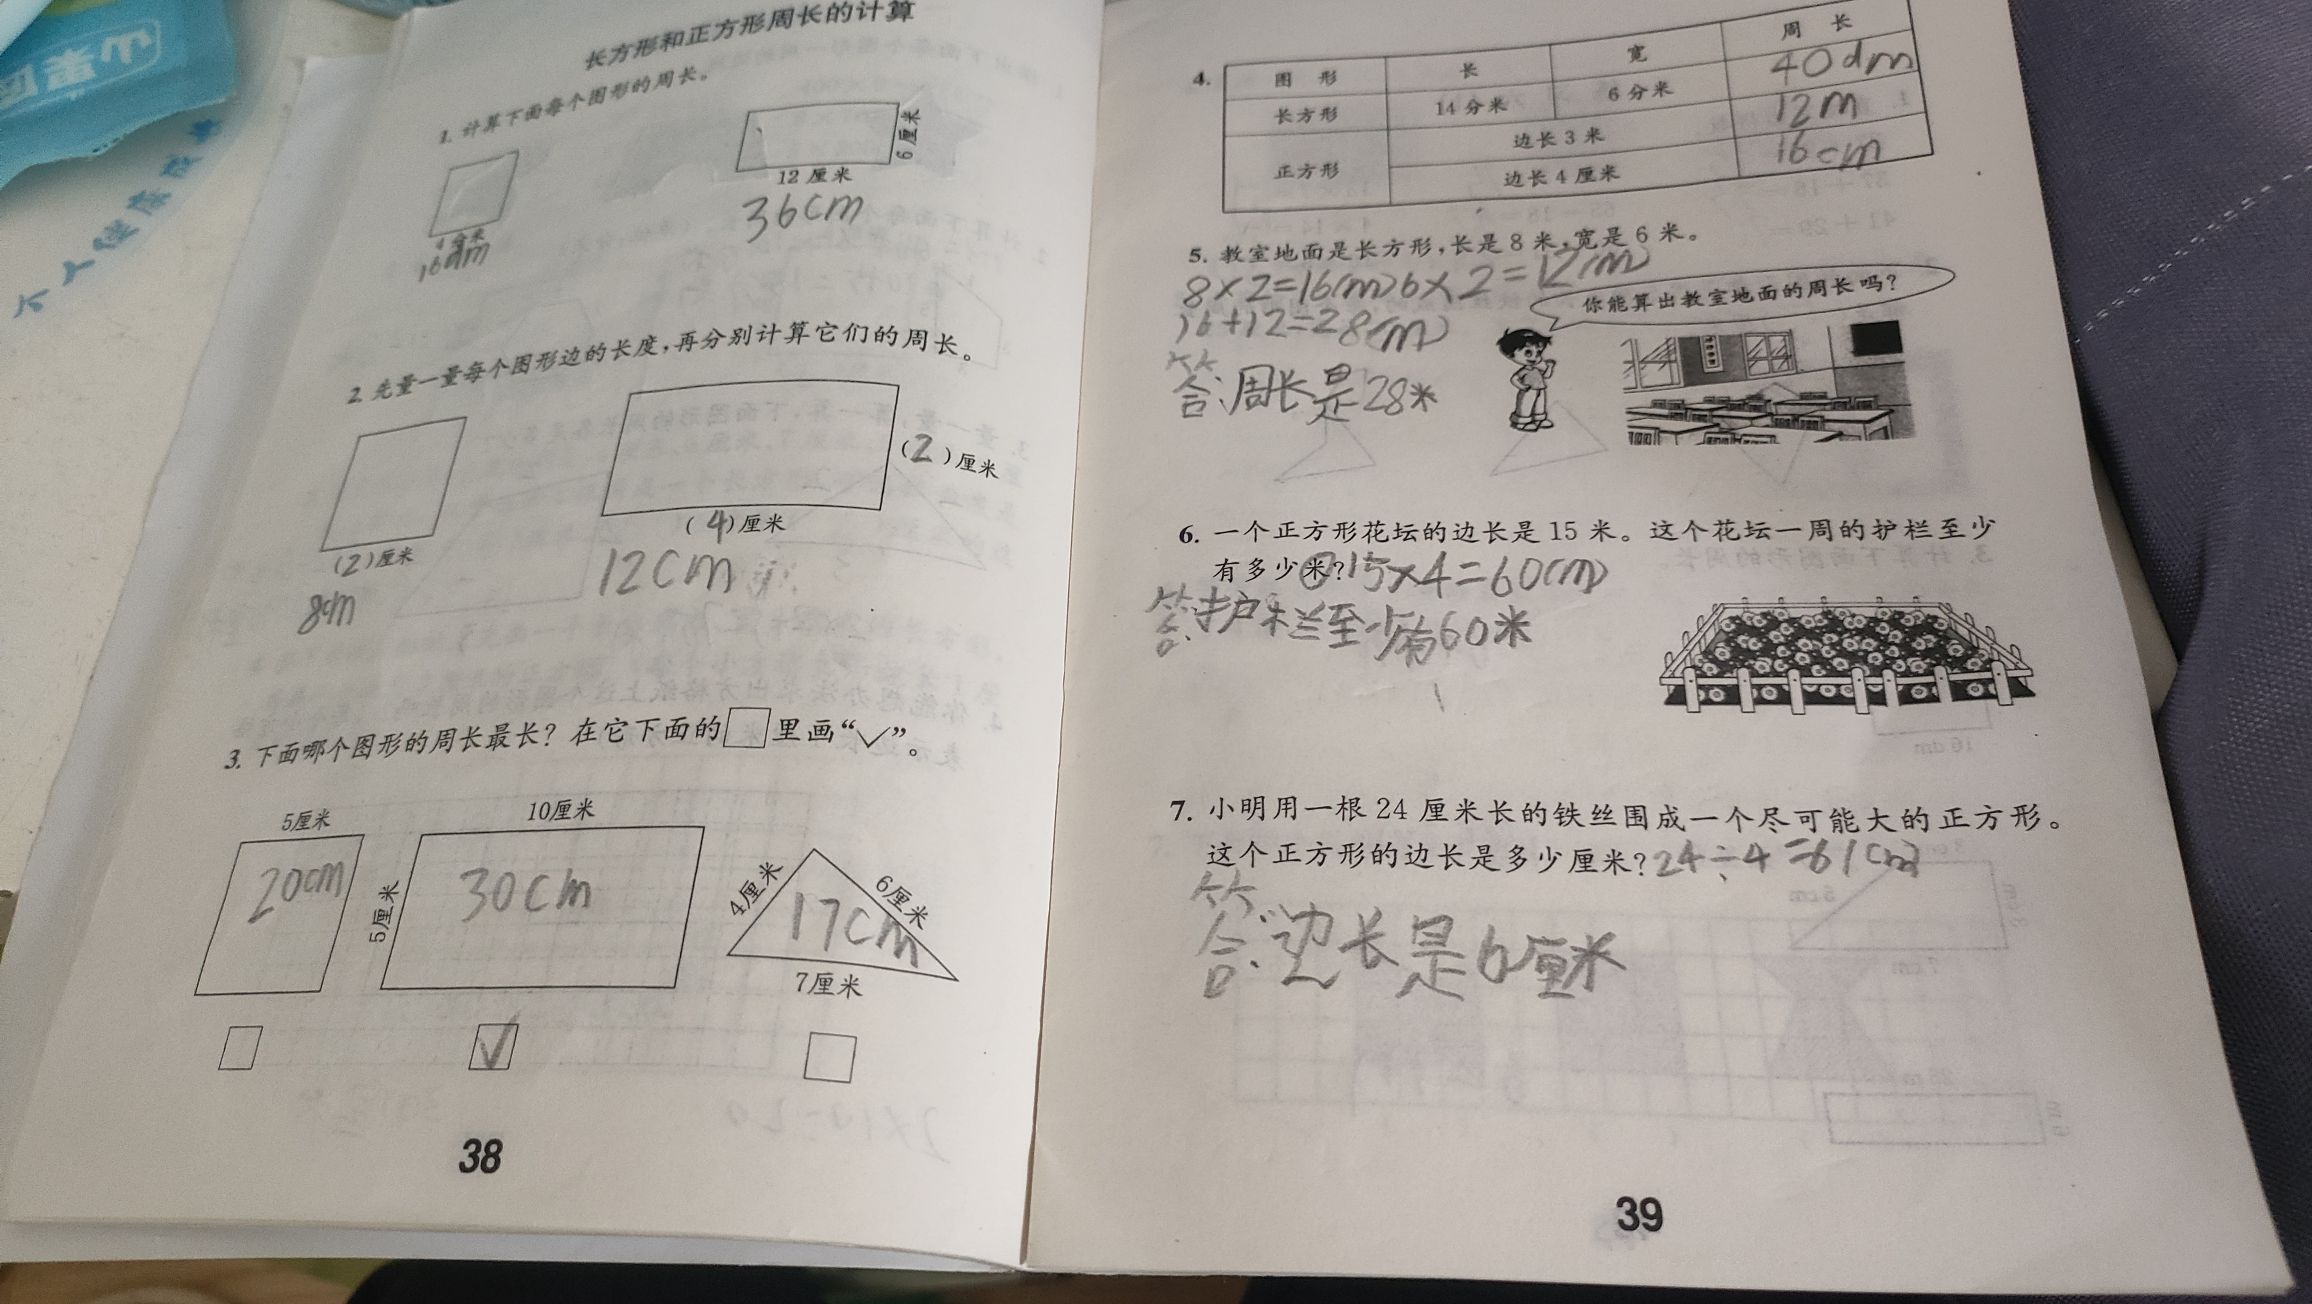 长方形和正方形周长的计算
1. 计算下面每个图形的周长。
6厘米
12厘米
4分米
16dm
36cm
2. 先量一量每个图形边的长度,再分别计算它们的周长。
(2)厘米
(2)厘米
(4)厘米
8cm
12cm
3. 下面哪个图形的周长最长?在它下面的□里画“✓”。
5厘米
10厘米
5厘米
4厘米
6厘米
7厘米
20cm
30cm
17cm
✓
38
4.
图 形 长 宽 周 长
长方形 14分米 6分米 40dm
正方形 边长3米 12m
边长4厘米 16cm
5. 教室地面是长方形,长是8米,宽是6米。
8×2=16(m) 6×2=12(m)
你能算出教室地面的周长吗?
16+12=28(m)
答:周长是28米
6. 一个正方形花坛的边长是15米。这个花坛一周的护栏至少
有多少米? 15×4=60(m)
答:护栏至少有60米
7. 小明用一根24厘米长的铁丝围成一个尽可能大的正方形。
这个正方形的边长是多少厘米? 24÷4=6(cm)
答:边长是6厘米
39